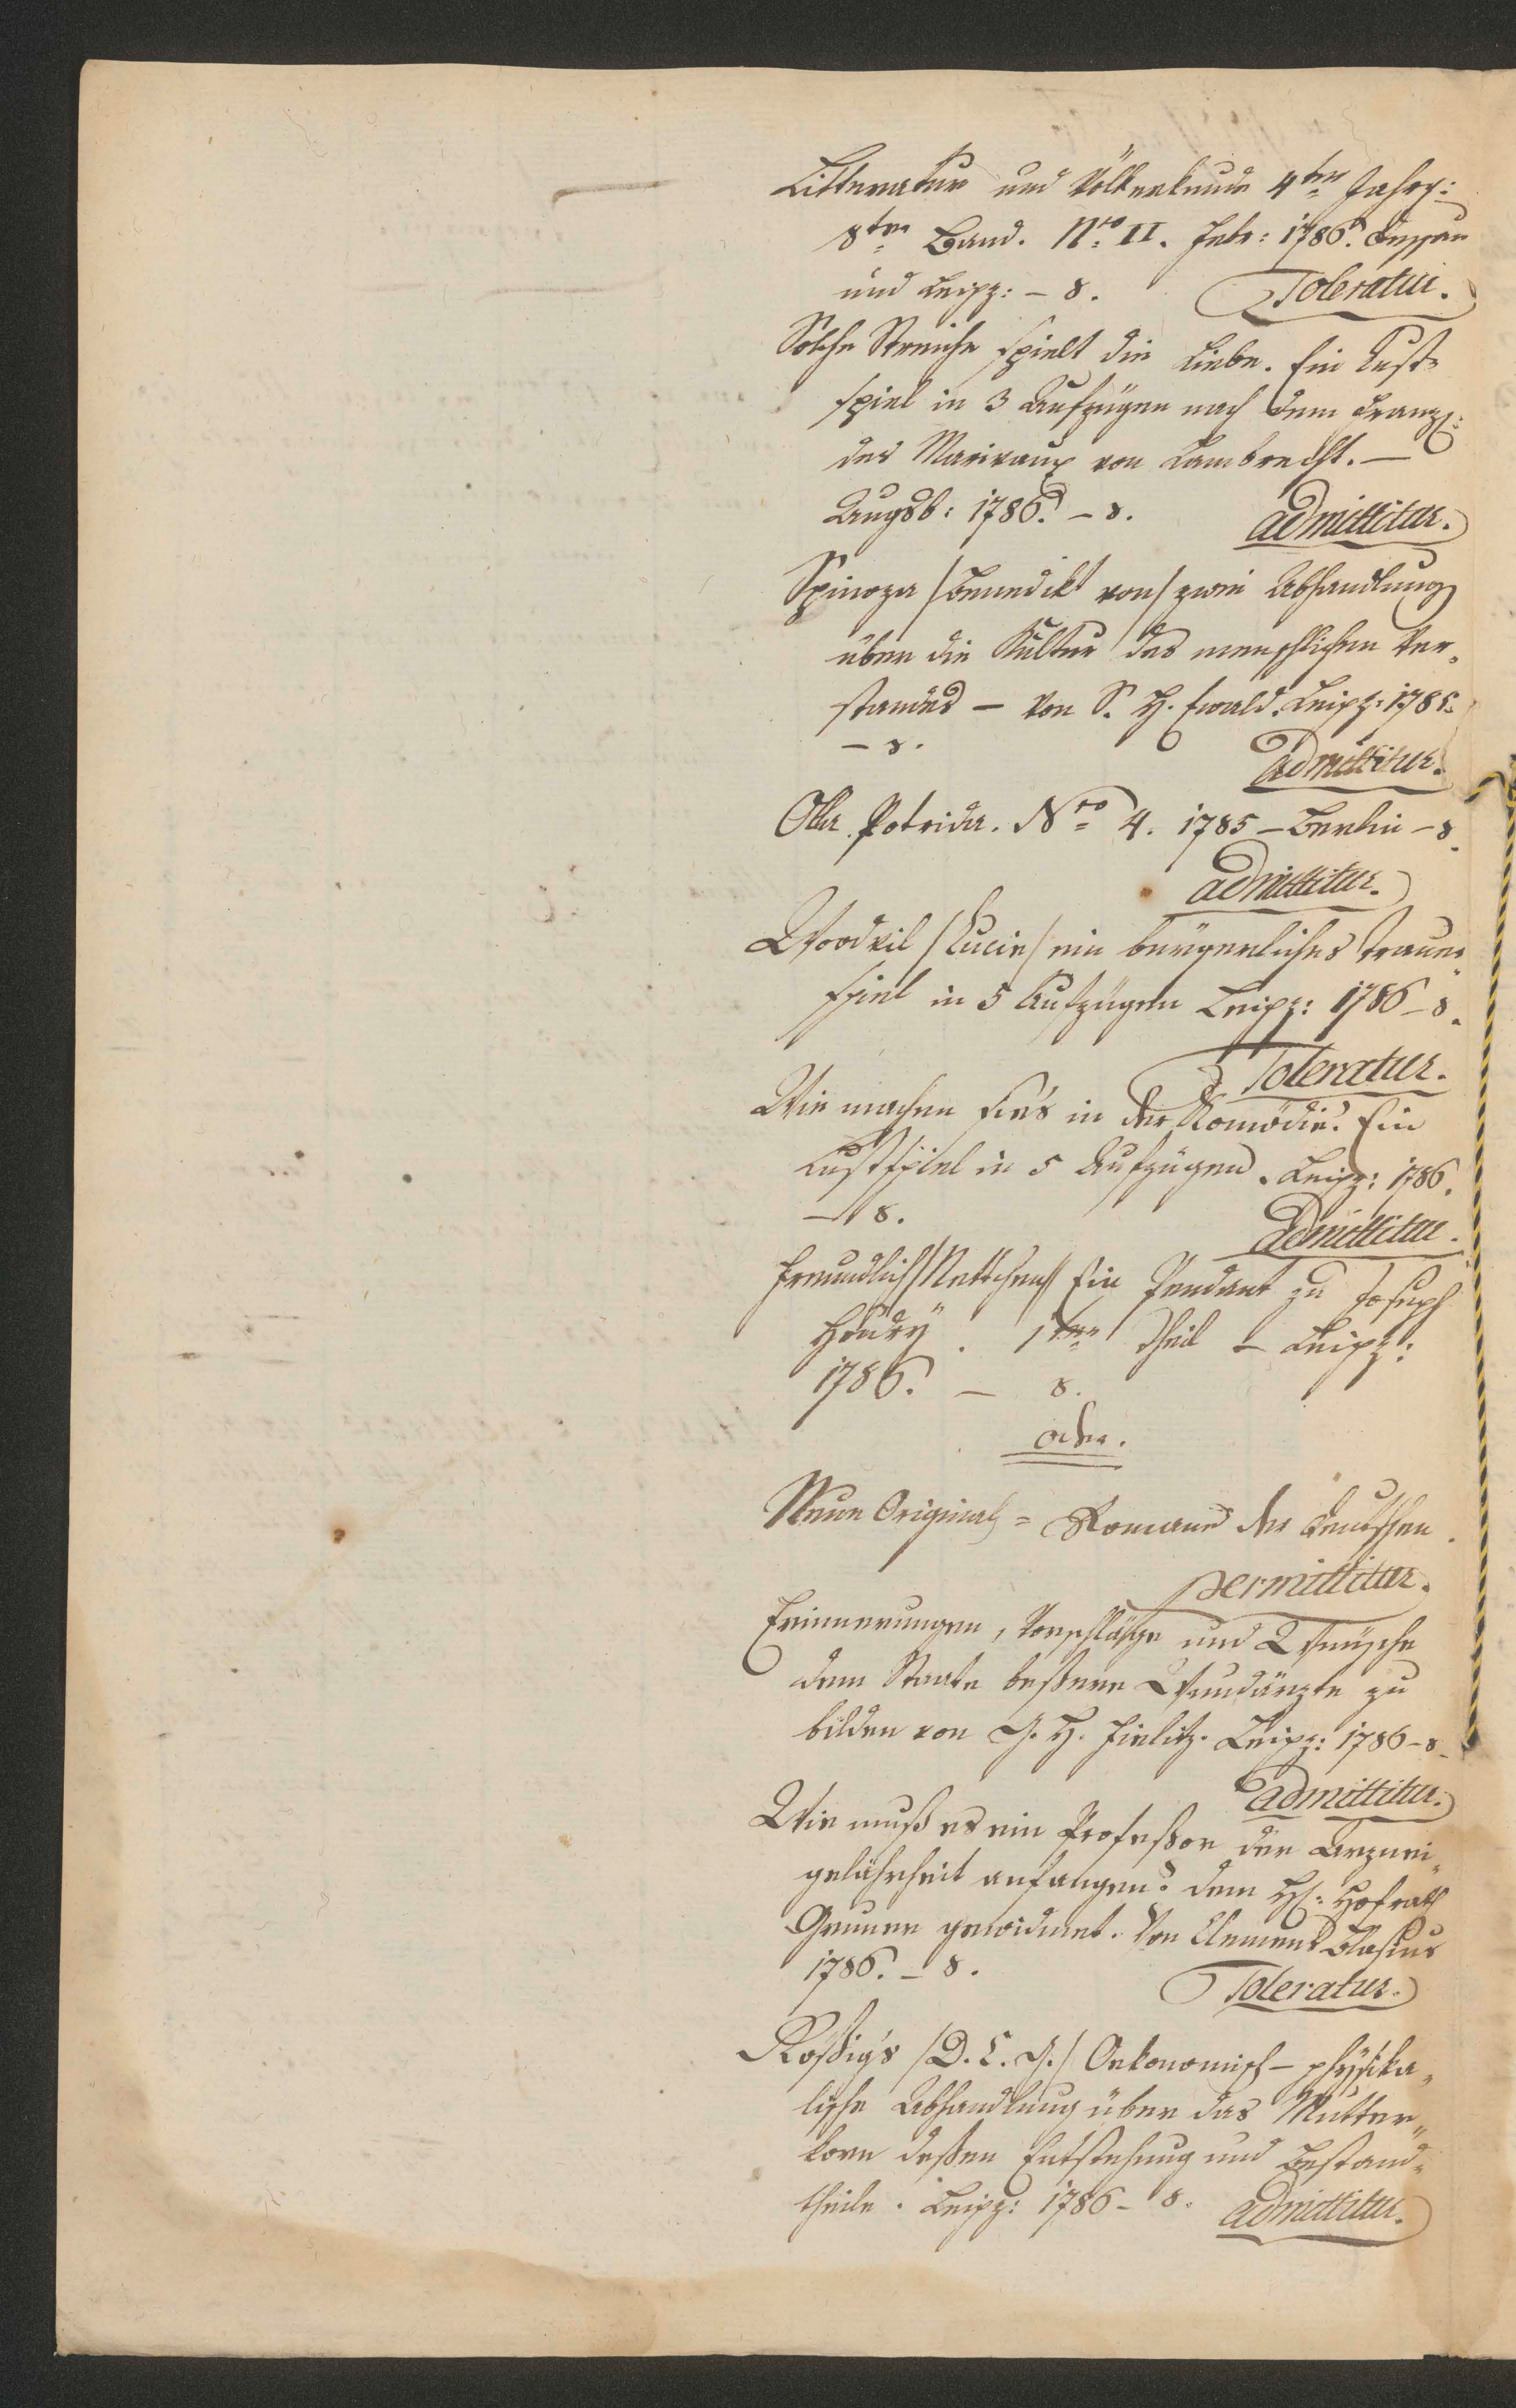 Litteratur und Völkerkunde 4ter Jahrg:
8ter Band. Nro II. Febr: 1786. Dessau
und Leipz: – 8. Toleratur.
Solche Streiche spielt die Liebe. Ein Lust-
spiel in 3 Aufzügen nach dem Franz:
des Marivaux von Lambrecht. –
Augsb: 1786. – 8. admittitur.
Spinoza /Benedikt von/ zwei Abhandlung
über die Kultur des menschlichen Ver-
standes – von S. H. Ewald. Leipz: 1785.
– 8. admittitur.
Olla Potrida. Nro 4. 1785 – Berlin – 8.
admittitur.
Woodvil /Lucie/ ein bürgerliches Trauer-
spiel in 5 Aufzügen Leipz: 1786 – 8.
Toleratur.
Wie machen sie's in der Komödie? Ein
Lustspiel in 5 Aufzügen. Leipz: 1786.
– 8. admittitur.
Freundlich /Nettchen/ Ein Pendant zu Joseph
1ter Theil – Leipz:
1786. – 8.
oder.
Neue Original = Romane der Deutschen.
permittitur.
Erinnerungen, Vorschläge und Wünsche
dem Staate beßere Wundärzte zu
bilden von J. H. Jielitz. Leipz: 1786 – 8.
admittitur.
Wie muß es ein Profeßor der Arznei-
gelährheit anfangen? dem H: Hofrath
Gruner gewidmet. Von Clemens Blasius
1786. – 8. Toleratur.
Rößig's /D. C. G./ Oekonomisch – physika-
lische Abhandlung über das Mutter-
korn deßen Entstehung und Bestand-
theile. Leipz: 1786 – 8. admittitur.